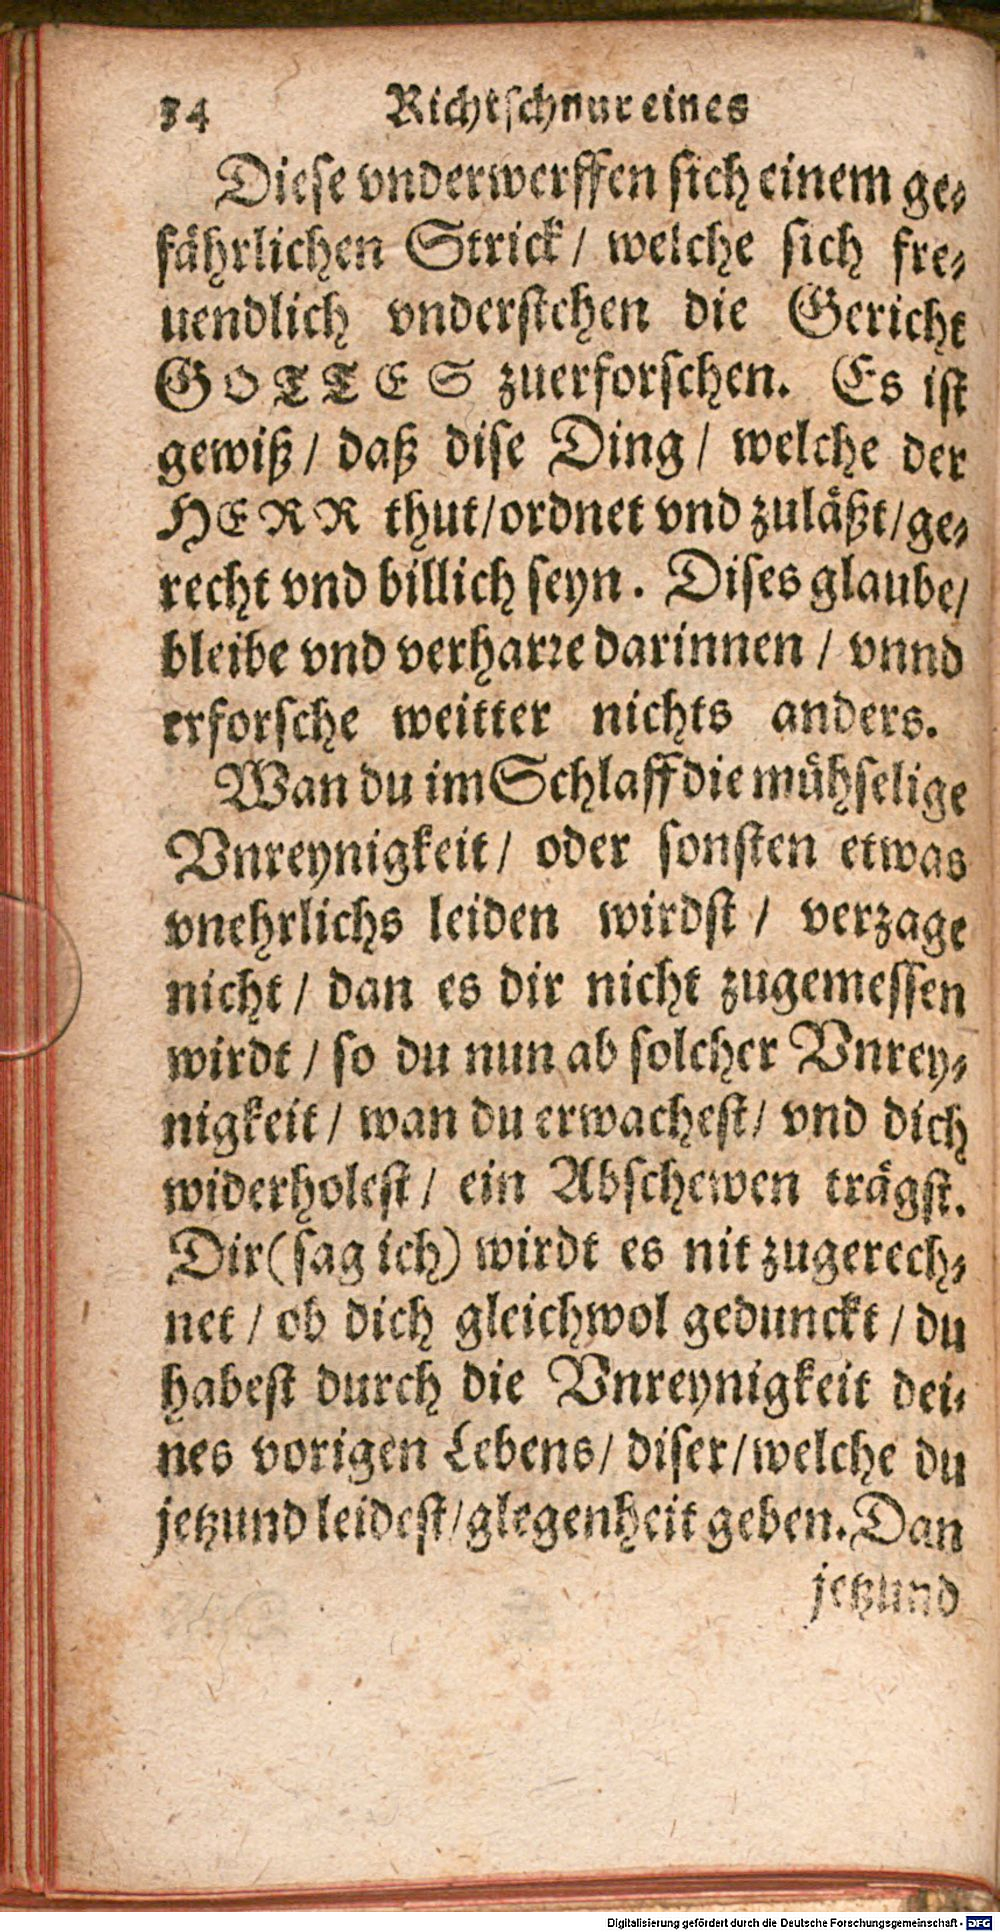 34 Richtschnur eines
Diese vnderwerffen sich einem ge-
fährlichen Strick / welche sich fre-
uendlich vnderstehen die Gericht
GOTTES zuerforschen. Es ist
gewiß / daß dise Ding / welche der
HERR thut / ordnet vnd zuläßt / ge-
recht vnd billich seyn. Dises glaube /
bleibe vnd verharre darinnen / vnnd
erforsche weitter nichts anders.
Wan du im Schlaff die mühselige
Vnreynigkeit / oder sonsten etwas
vnehrlichs leiden wirdst / verzage
nicht / dan es dir nicht zugemessen
wirdt / so du nun ab solcher Vnrey-
nigkeit / wan du erwachest / vnd dich
widerholest / ein Abschewen trägst.
Dir (sag ich) wirdt es nit zugerech-
net / ob dich gleichwol gedunckt / du
habest durch die Vnreynigkeit dei-
nes vorigen Lebens / diser / welche du
jetzund leidest / glegenheit geben. Dan
jetzund
Digitalisierung gefördert durch die Deutsche Forschungsgemeinschaft - DFG